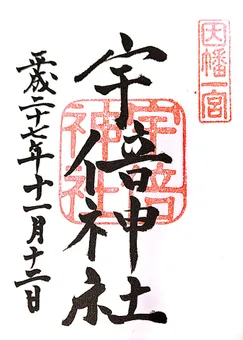 因幡一宮
宇倍神社
宇倍
神社
平成二十七年十一月十二日